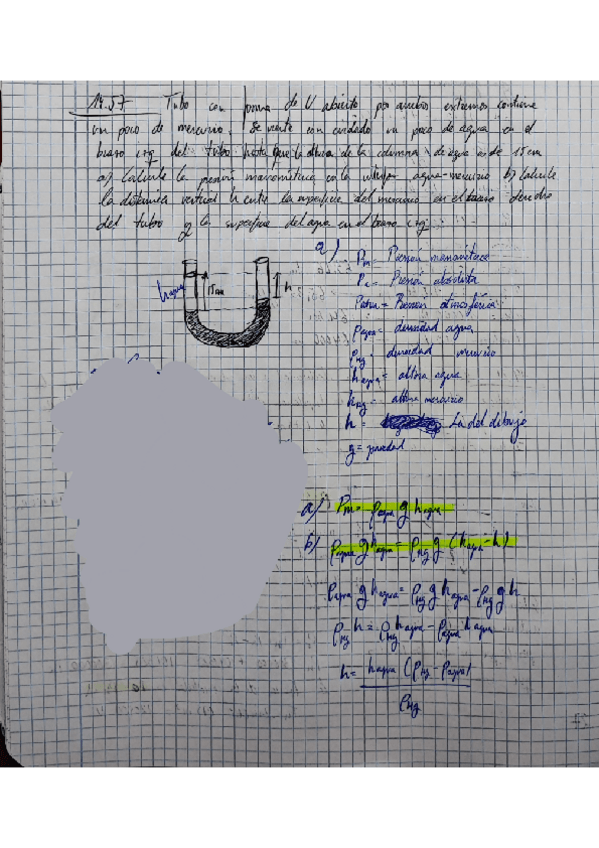 14.57 Tubo con forma de U abierto por ambos extremos contiene
un poco de mercurio. Se vierte con cuidado un poco de agua en el
brazo izq del tubo hasta que la altura de la columna de agua es de 15 cm
a) Calcule la presión manométrica en la interfaz agua-mercurio b) Calcule
la distancia vertical h entre la superficie del mercurio en el brazo derecho
del tubo y la superficie del agua en el brazo izq.
a)
Pm = Presión manométrica
Presión absoluta
Patm = Presión atmosférica
ρagua = densidad agua
ρHg = densidad mercurio
hagua = altura agua
hHg = altura mercurio
h = La del dibujo
g = gravedad
hagua
15cm
h
a) Pm = ρagua g hagua
b) ρagua g hagua = ρHg g (hagua - h)
ρagua g hagua = ρHg g hagua - ρHg g h
ρHg h = ρHg hagua - ρagua hagua
h = hagua (ρHg - ρagua)
ρHg